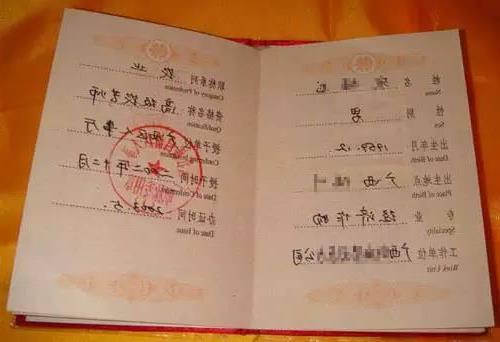 姓 名
Name
性 别 男
Sex
出生年月 1969.12
Date of Birth
出生地点 广西
Place of Birth
专 业 经济作物
Speciality
工作单位 广西 公司
Work Unit
职称系列 农业
Category of Profession
资格名称 高级农艺师
Qualification
授予单位 广西区人事厅
Conferring Institution
授予时间 二〇〇二年十二月
Date of Conferment
办证时间 2003.5.
Date of Issue